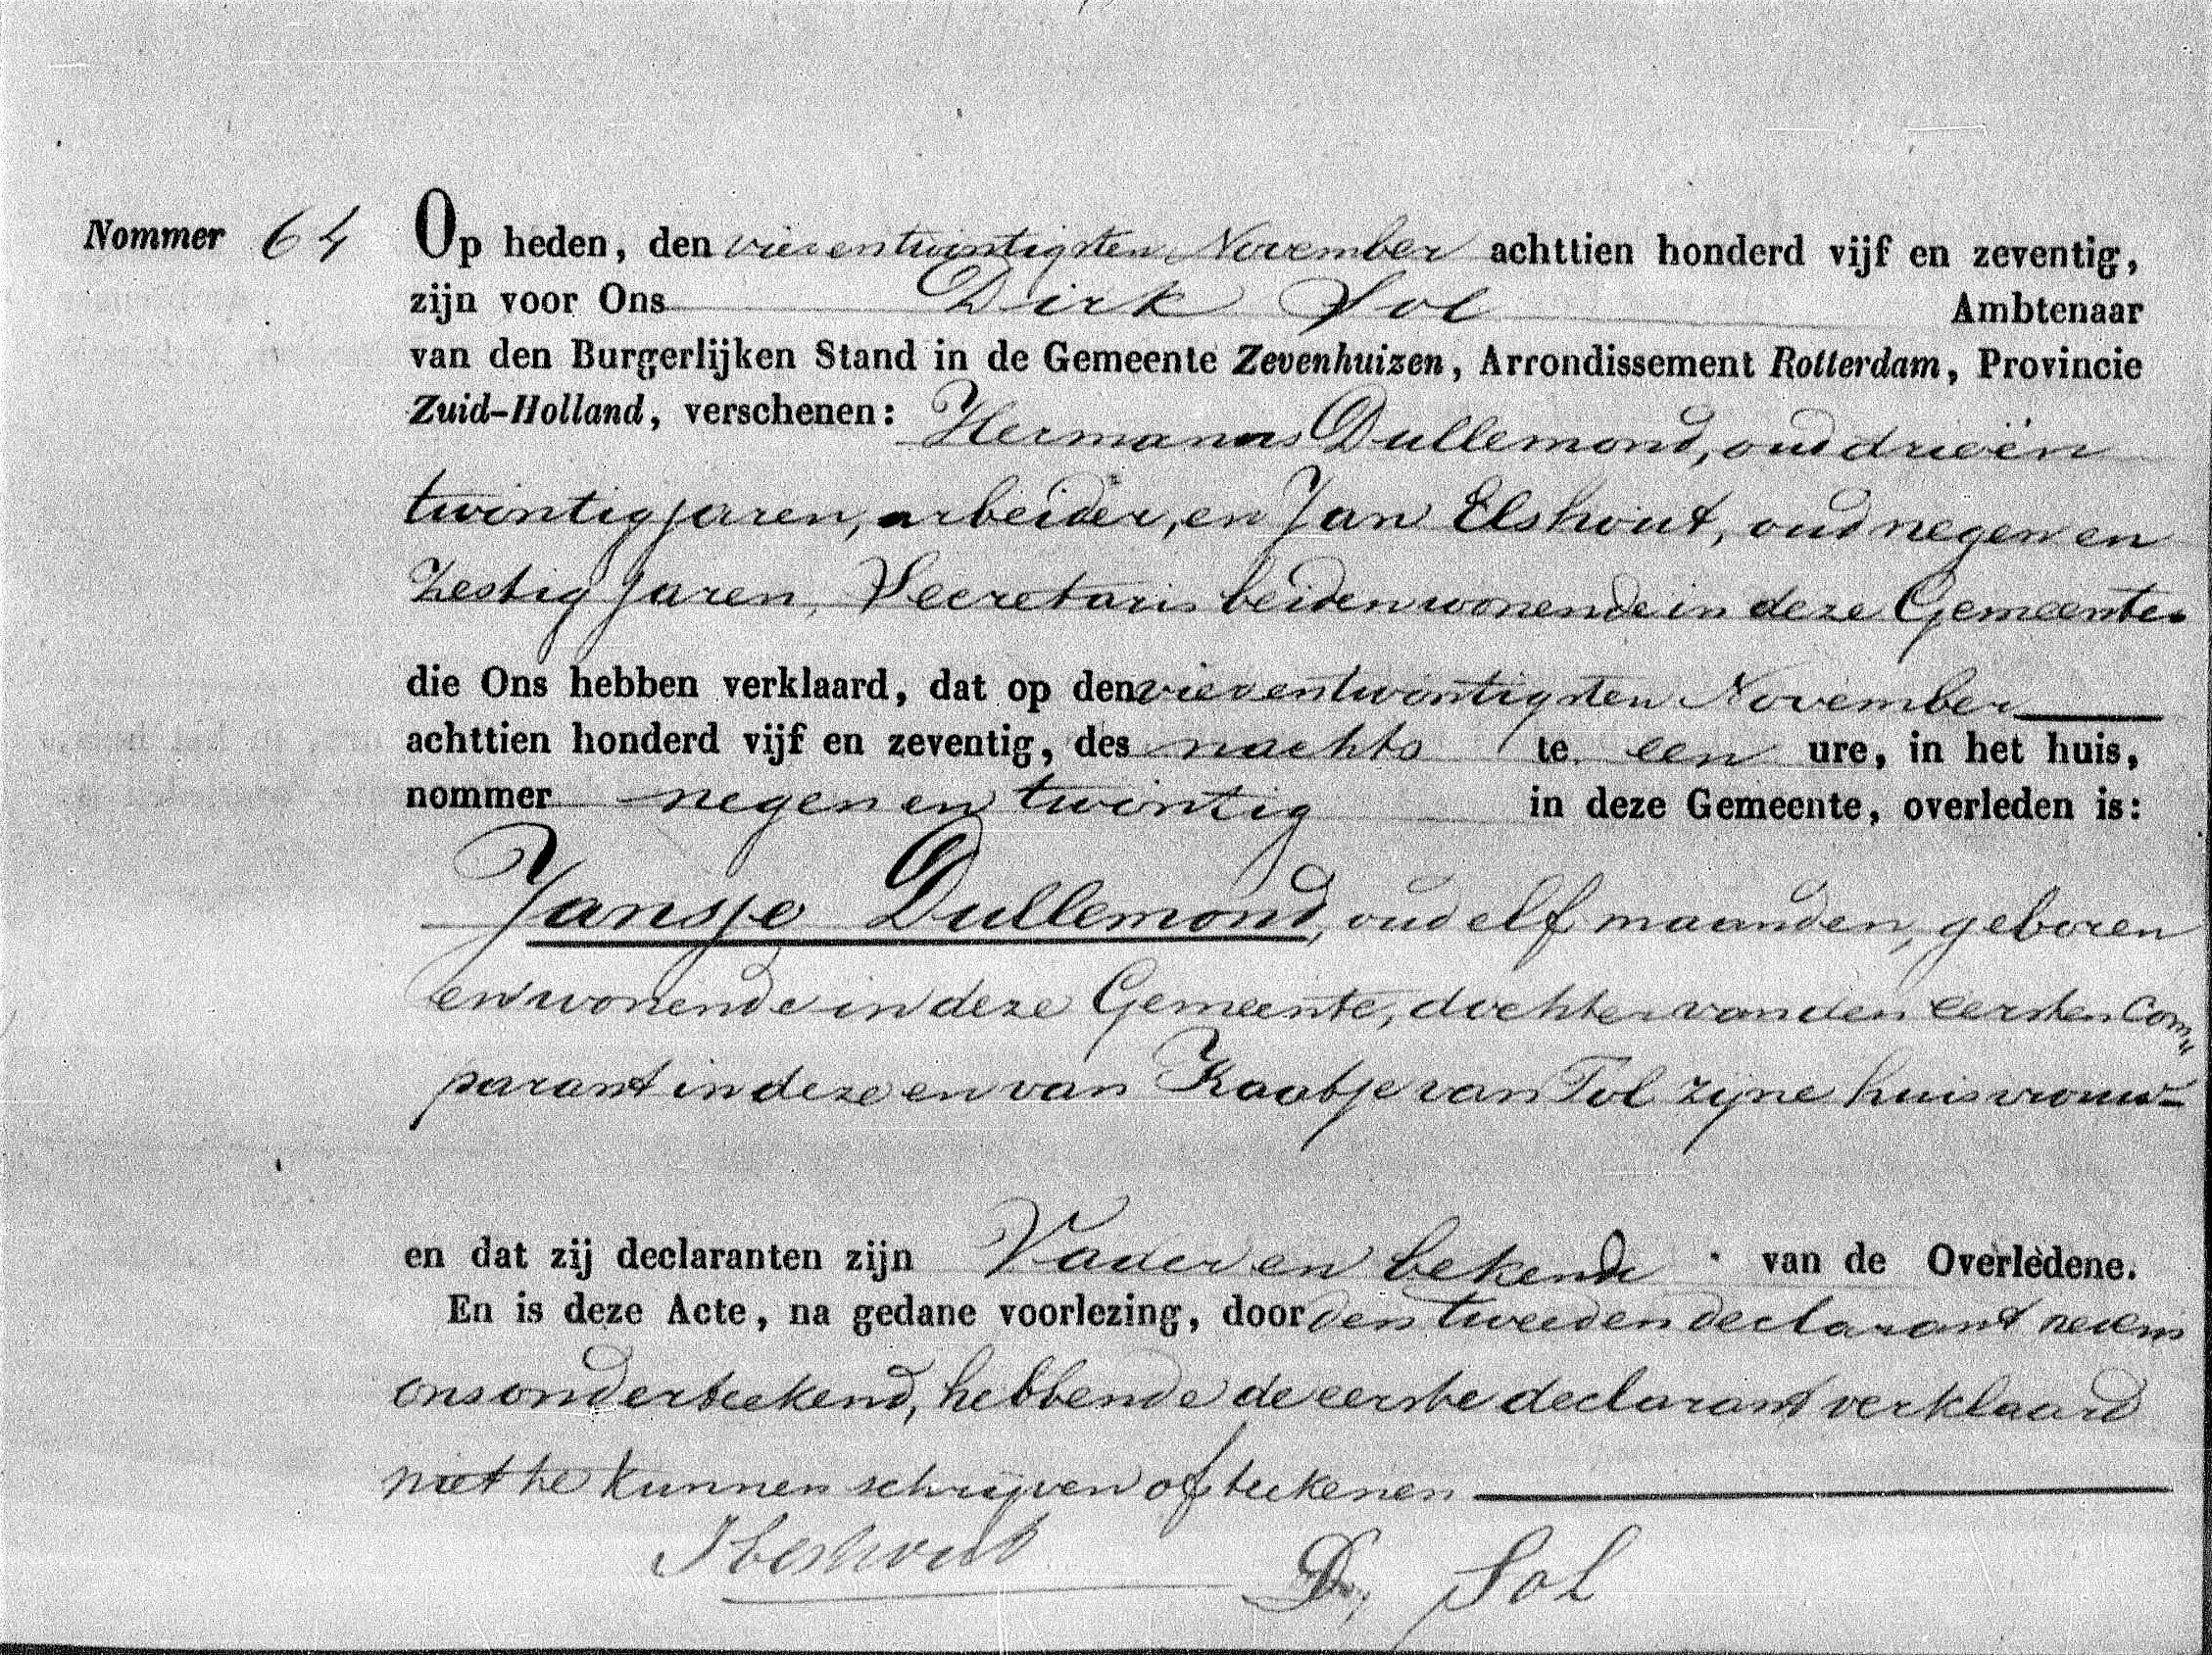 Nommer 64 Op heden, den vierentwintigsten November achttien honderd vijf en zeventig,
zijn voor Ons Dirk Sol Ambtenaar
van den Burgerlijken Stand in de Gemeente Zevenhuizen, Arrondissement Rotterdam, Provincie
Zuid-Holland, verschenen: Hermanus Dullemond, oud drieën
twintig jaren, arbeider, en Jan Elshout, oud negen en
Zestig jaren, Secretaris beiden wonende in deze Gemeente
die Ons hebben verklaard, dat op den vierentwintigsten November
achttien honderd vijf en zeventig, des nachts te een ure, in het huis,
nommer negen en twintig in deze Gemeente, overleden is:
Jansje Dullemond, oud elf maanden, geboren
en wonende in deze Gemeente, dochter van den eersten Com„
parant in deze en van Kaatje van Tol zijne huisvrouw
en dat zij declaranten zijn Vader en bekende van de Overledene.
En is deze Acte, na gedane voorlezing, door den tweeden declarant nevens
ons onderteekend, hebbende de eerste declarant verklaard
niet te kunnen schrijven of teekenen
J Elshout D, Sol